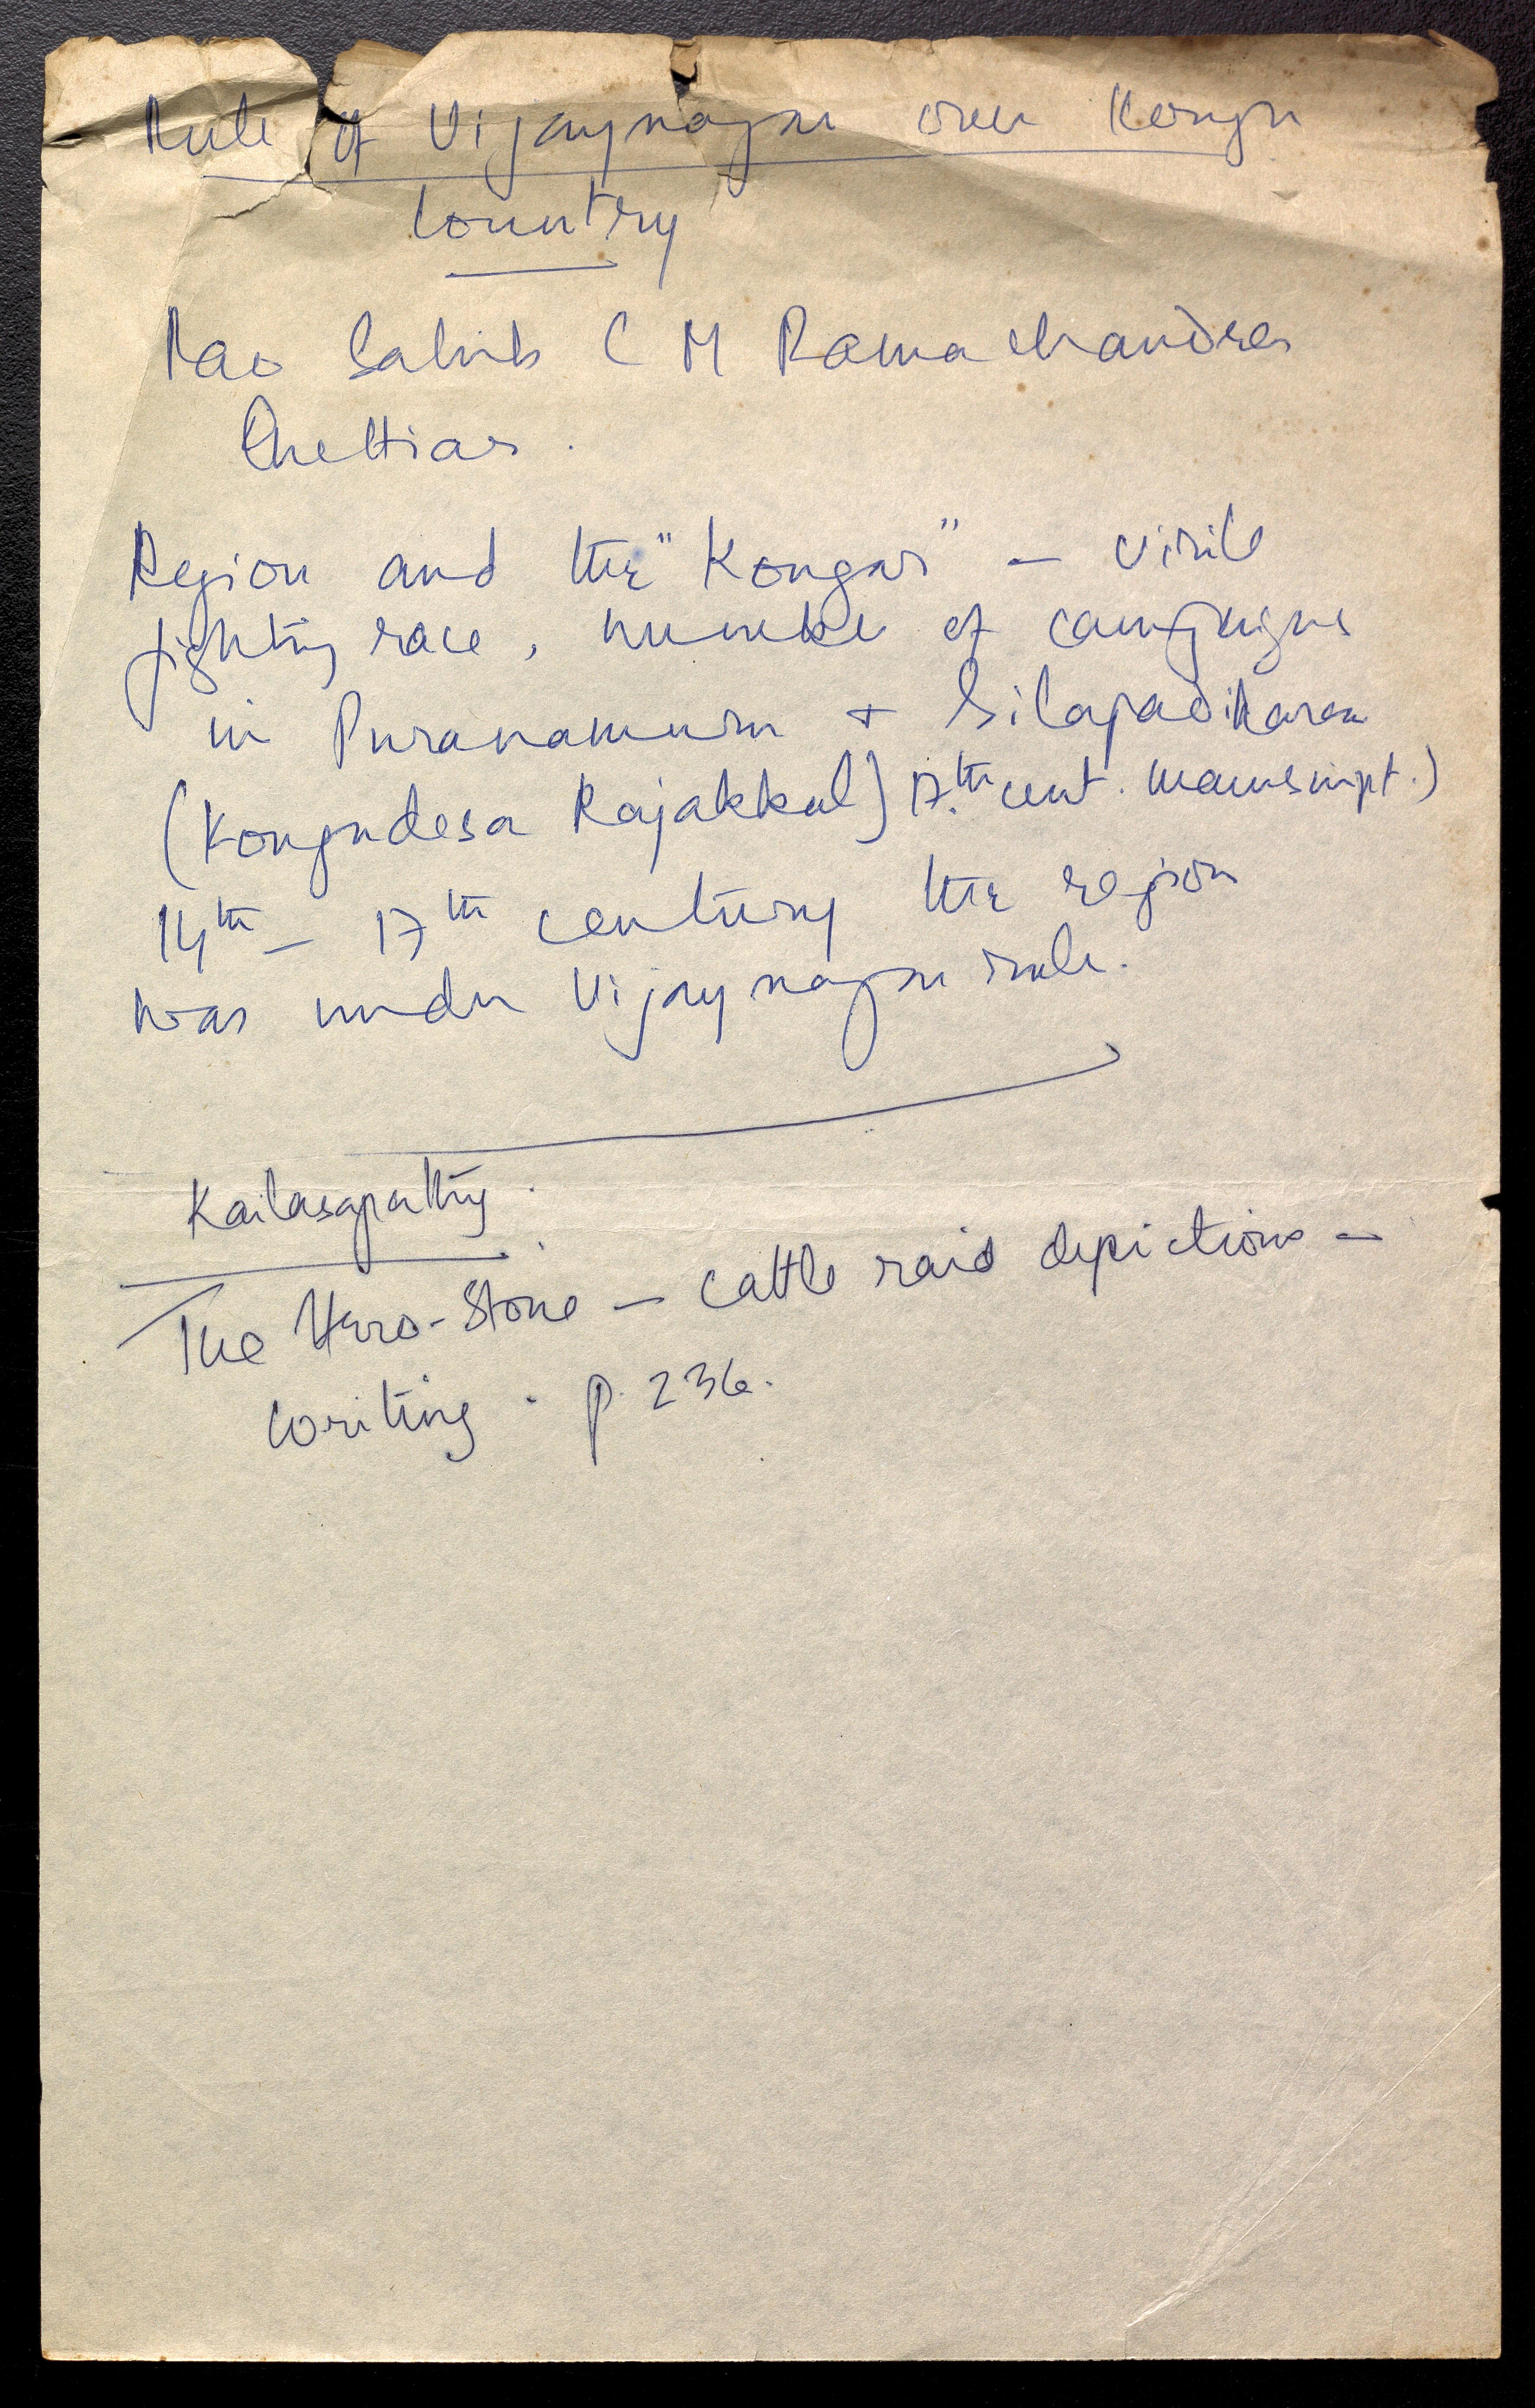 Rule of Vijaynagar over Kongu
Country
Rao Sahib C M Ramachandra
Chettiar.
Region and the "Kongar" – virile
fighting race, number of campaigns
in Puranamuru + Silapadikaram
(Kongudesa Rajakkal) 17th cent. manuscript.)
14th – 17th century the region
was under Vijaynagar rule.
Kailasapathy.
The Hero-Stone – cattle raid depictions –
writing. p. 236.